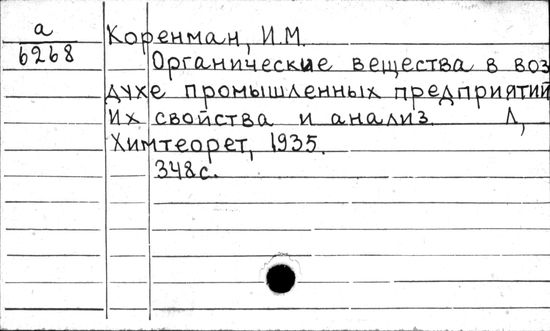 а
6268
Коренман, И.М.
Органические вещества в воз
духе промышленных предприятий
Их свойства и анализ. Л,
Химтеорет, 1935.
348с.